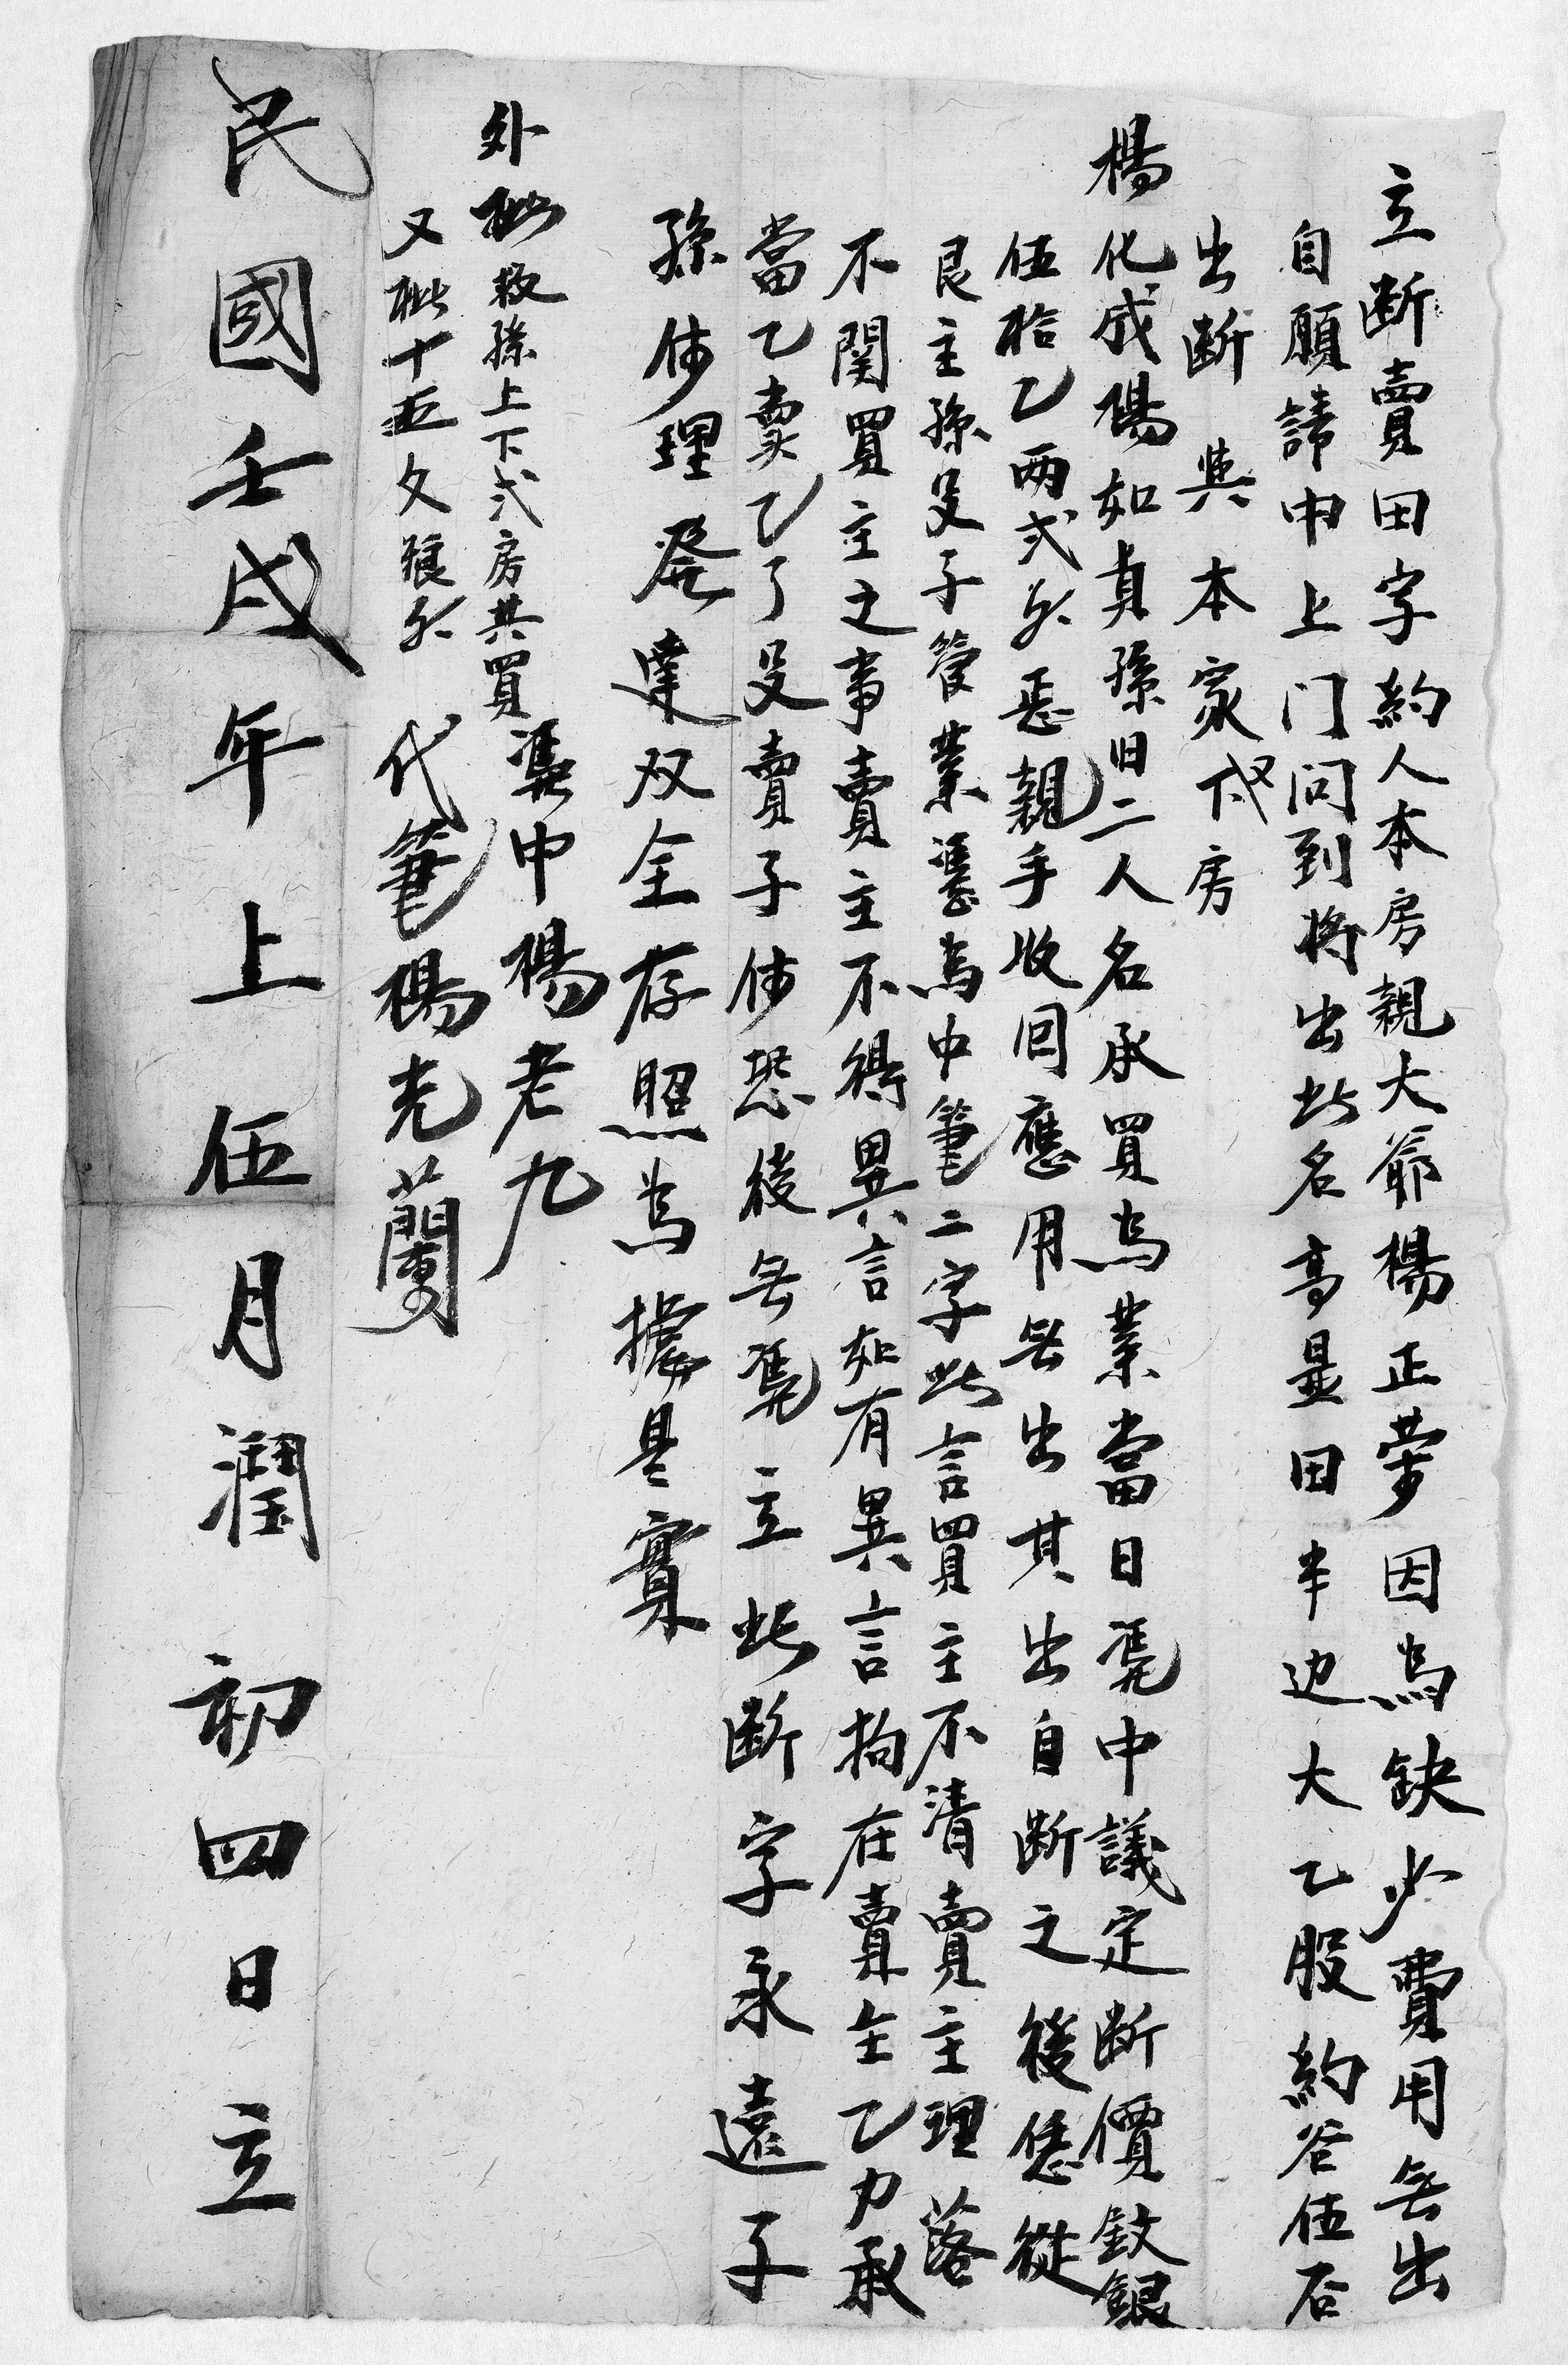 立断賣田字約人本房親大爺楊正榮因為缺少費用無出
自願請中上门问到将出此名高显田半边大乙股約谷伍石
出断與本家弍房
楊化成楊如真孫旧二人名承買為業當日凴中議定断價钱銀
伍拾乙两弍分悉親手收回應用無出其出自断之後恁從
艮主孫受子管業凴為中筆二字此言買主不清賣主理落
不関買主之事賣主不得異言如有異言拘在賣主乙力承
當乙賣乙了受賣子侍恐後無凴立此断字永遠子
孫侍理發達双全存照為據是實
外批救孫上下弍房共買凴中楊老九
又批十五文銀分代筆楊光蘭
民國壬戌年上伍月潤初四日立